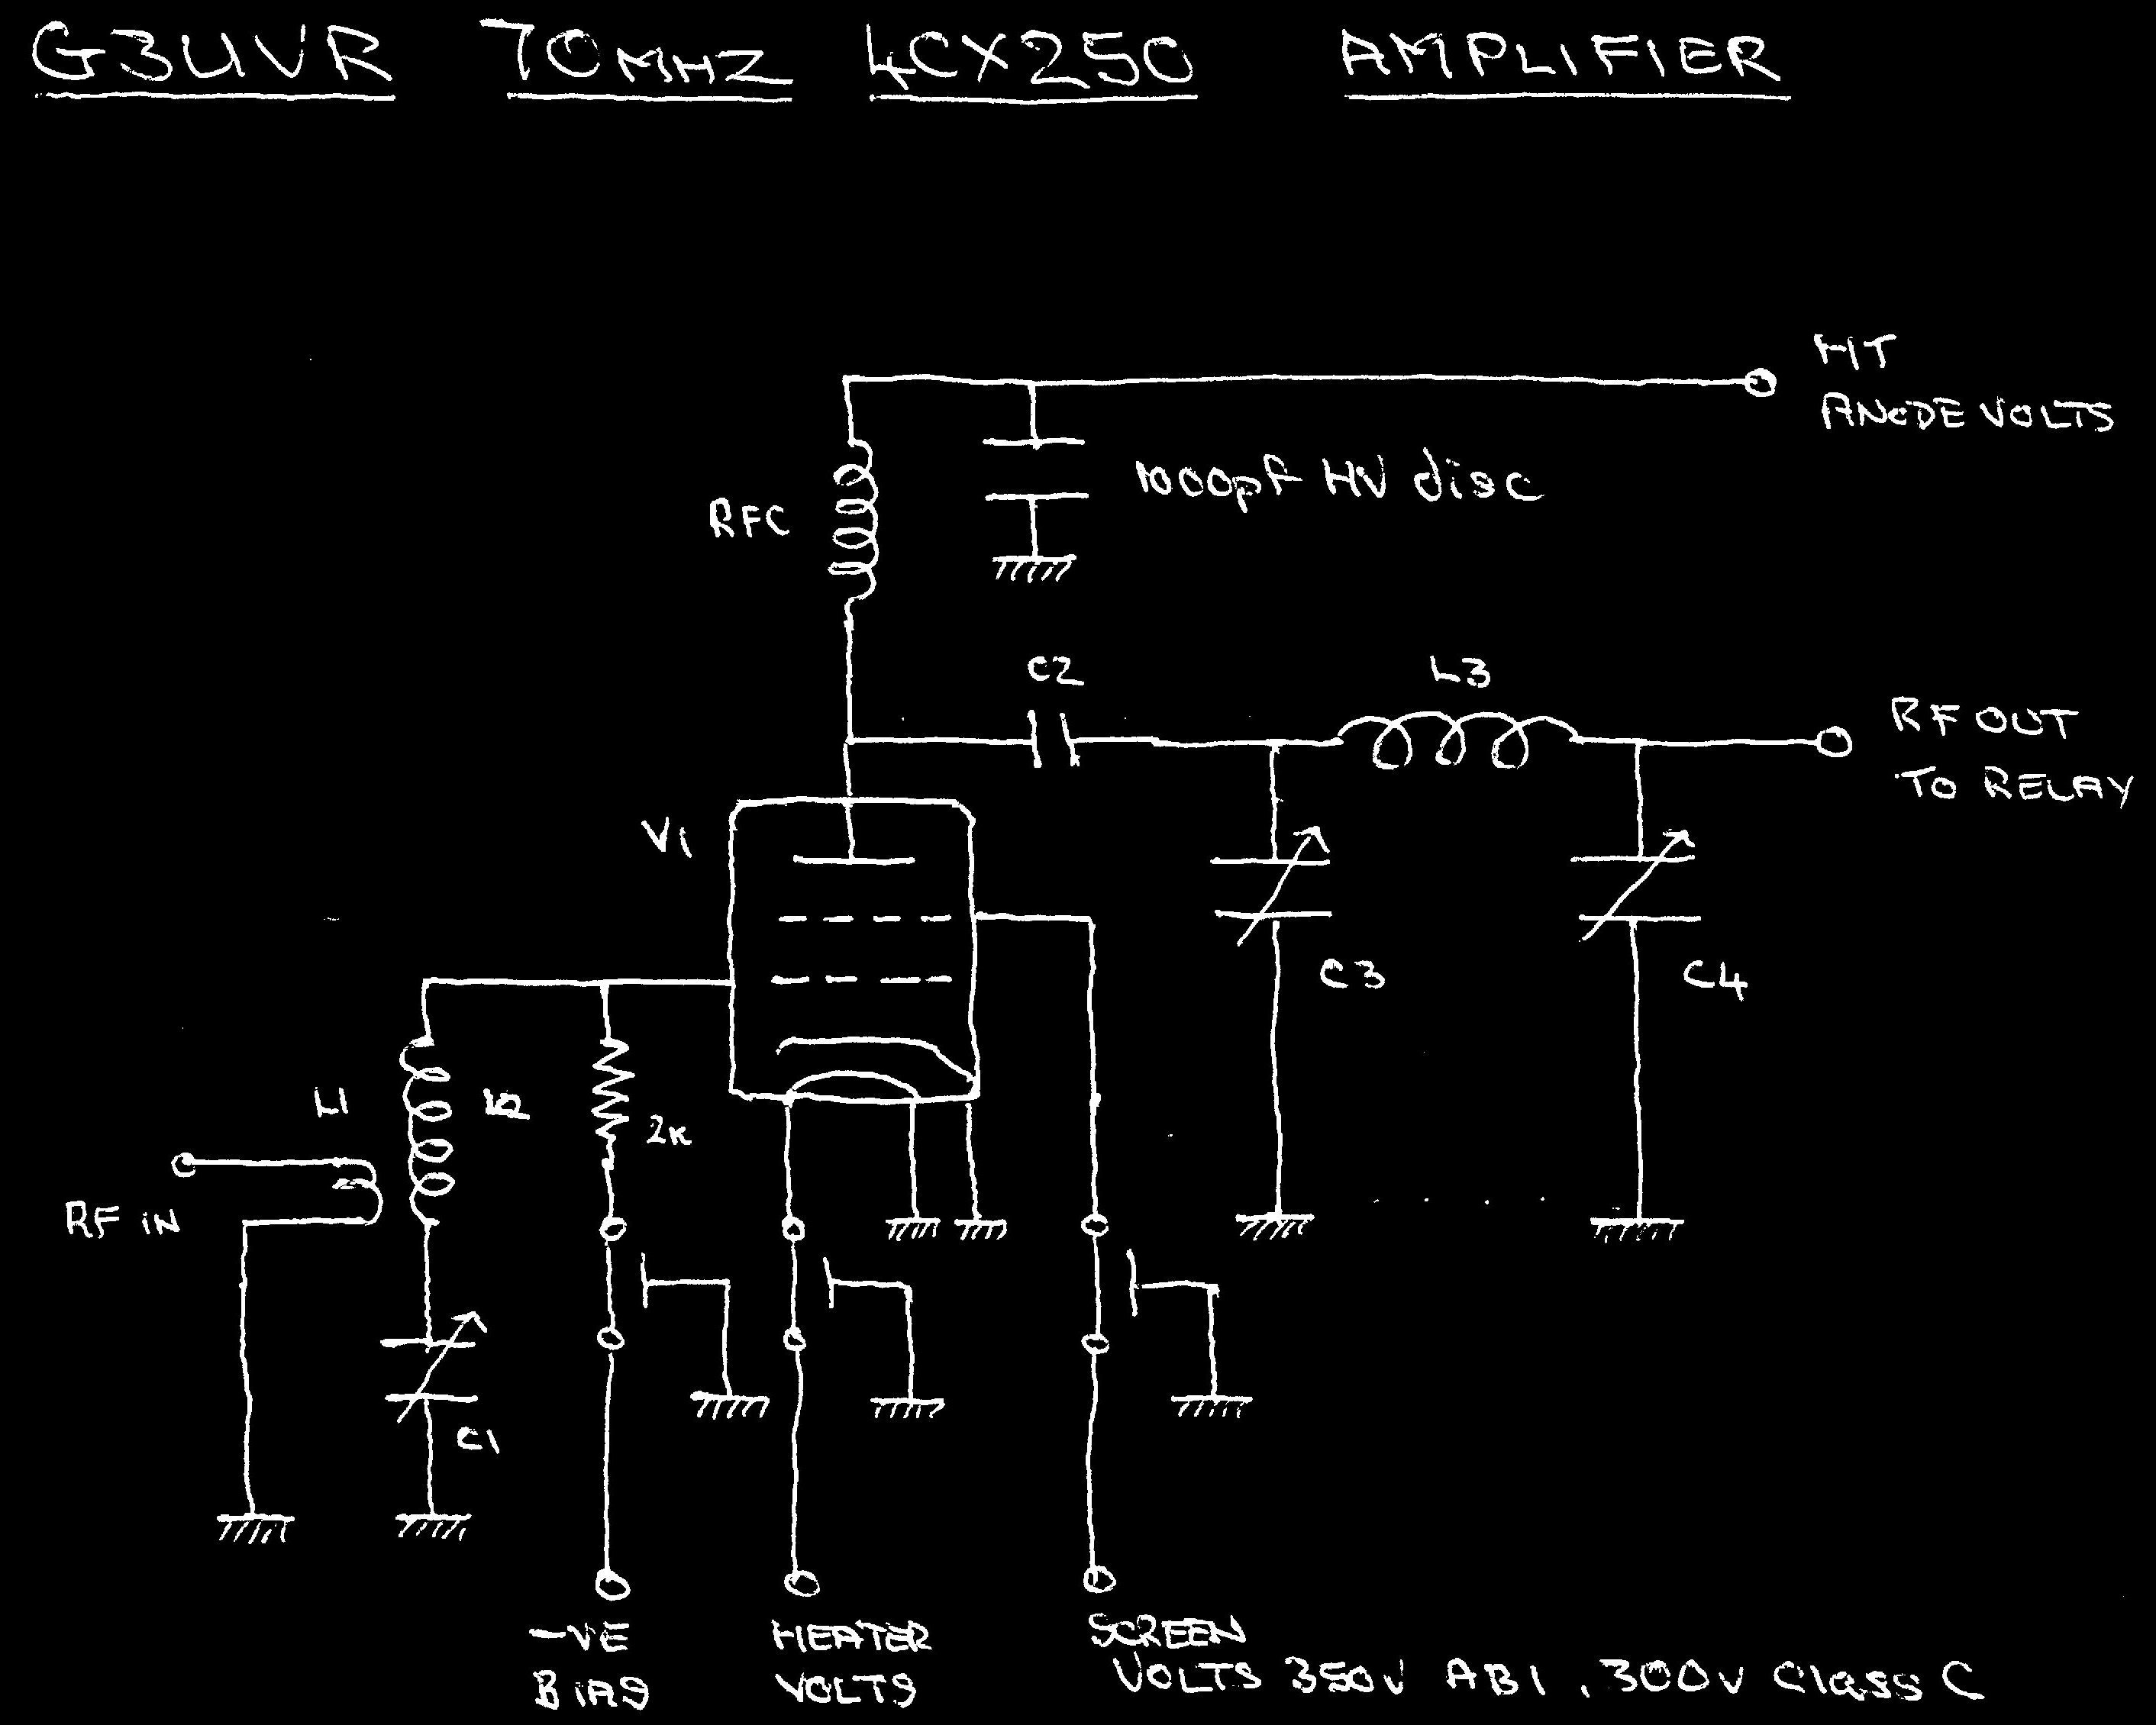 G3UVR 70MHZ 4CX250 AMPLIFIER
HT
ANODE VOLTS
1000pf HV disc
RFC
C2
L3
RF OUT
TO RELAY
V1
C3
C4
L1
L2
2K
RF IN
C1
-VE
BIAS
HEATER
VOLTS
SCREEN
VOLTS 350V AB1, 300V Class C